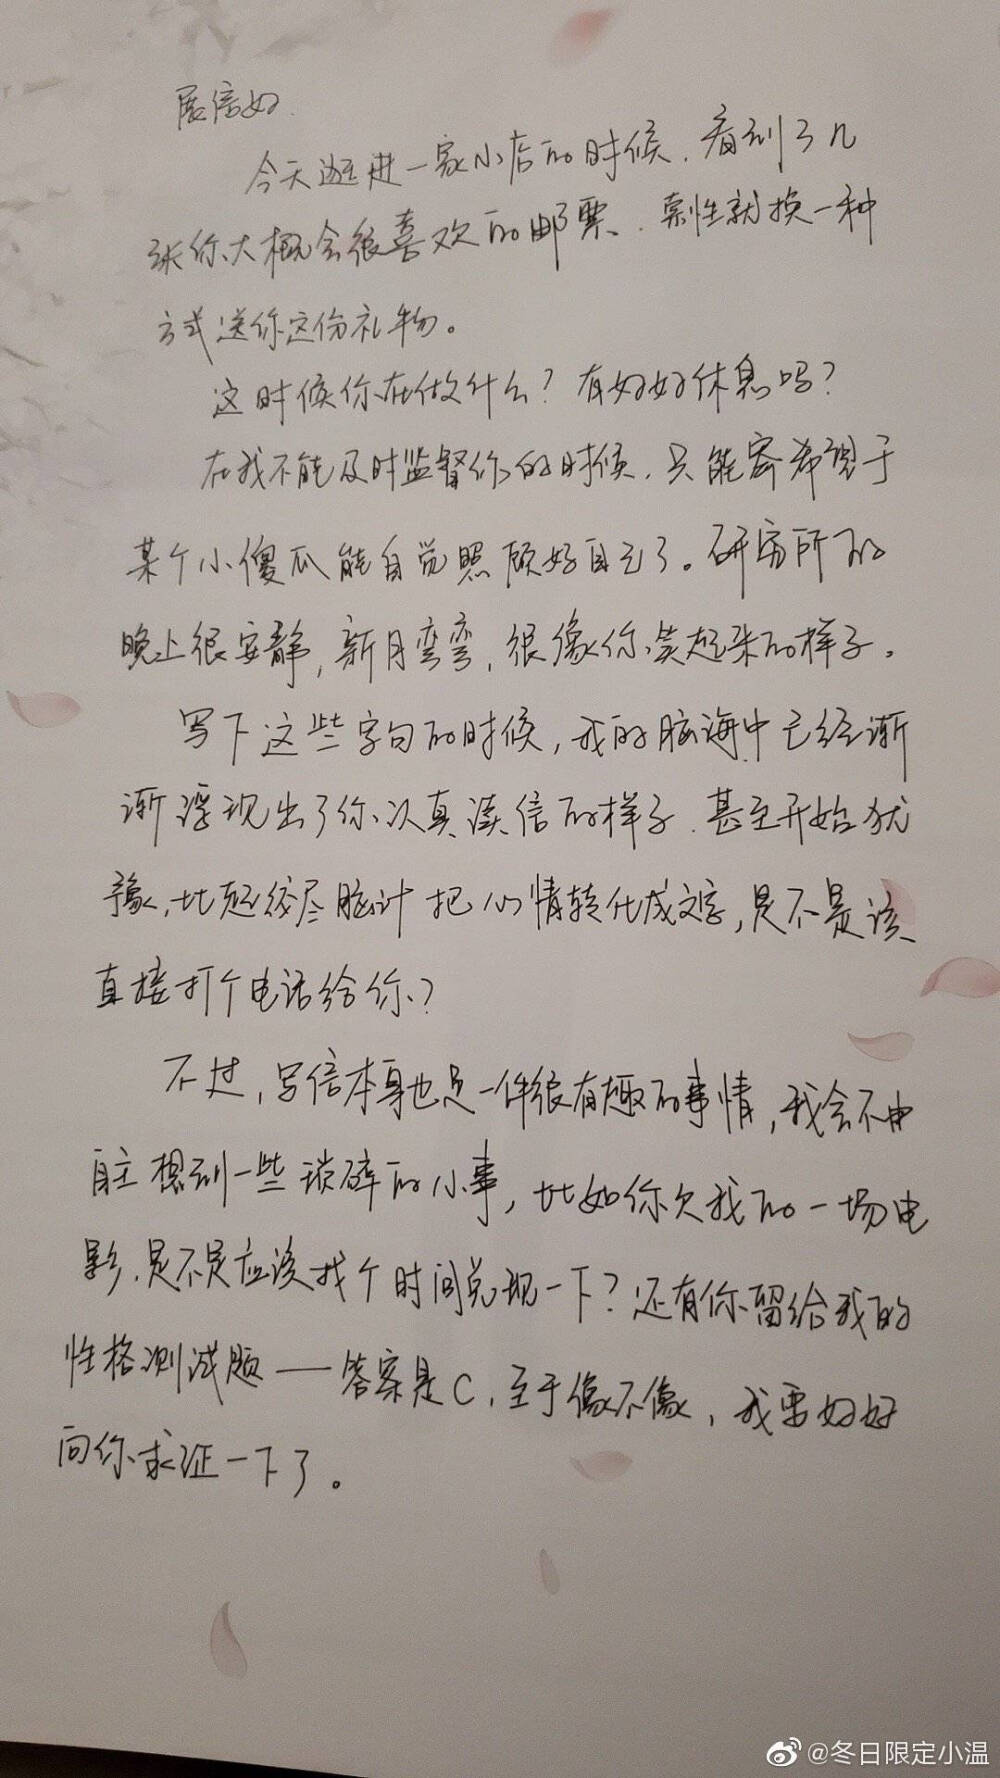 展信好.
今天逛进一家小店的时候,看到了几
张你大概会很喜欢的邮票,索性就换一种
方式送你这份礼物。
这时候你在做什么?有好好休息吗?
在我不能及时监督你的时候,只能寄希望于
某个小傻瓜能自觉照顾好自己了。研究所的
晚上很安静,新月弯弯,很像你笑起来的样子。
写下这些字句的时候,我的脑海中已经渐
渐浮现出了你认真读信的样子.甚至开始犹
豫,比起绞尽脑汁把心情转化成文字,是不是该
直接打个电话给你?
不过,写信本身也是一件很有趣的事情,我会不由
自主想到一些琐碎的小事,比如你欠我的一场电
影,是不是应该找个时间兑现一下?还有你留给我的
性格测试题——答案是C,至于像不像,我要好好
向你求证一下了。
@冬日限定小温